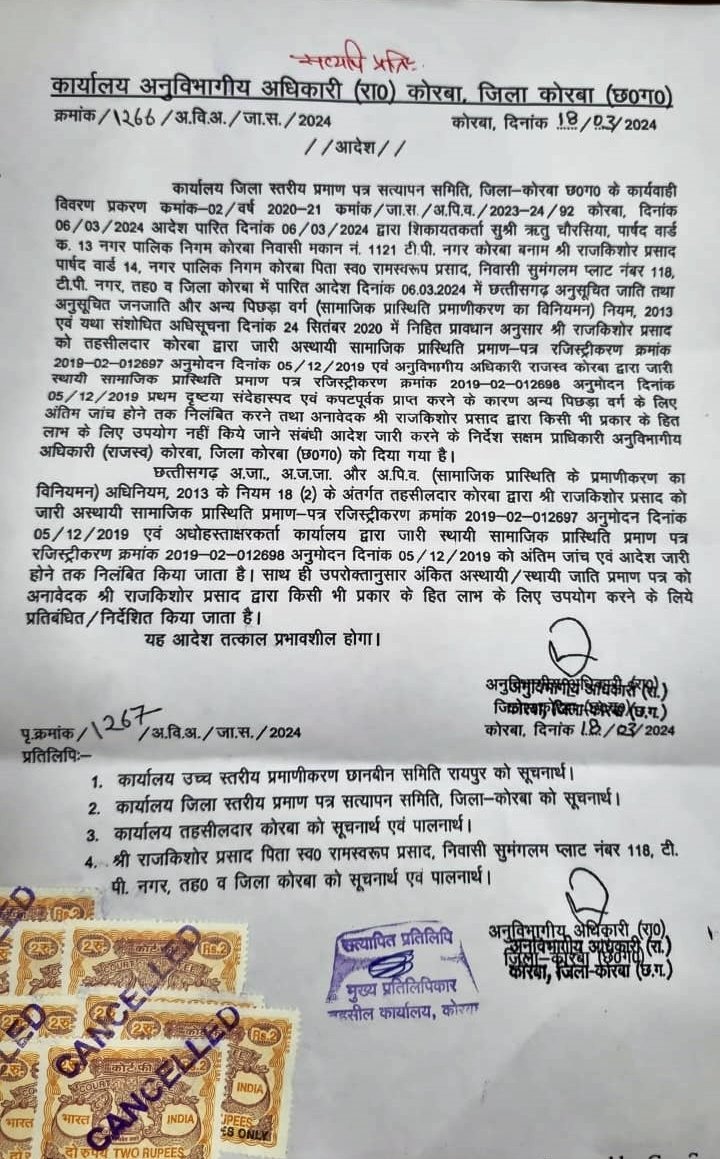 सत्यापि प्रतिः
कार्यालय अनुविभागीय अधिकारी (रा0) कोरबा, जिला कोरबा (छ0ग0)
क्रमांक/1266/अ.वि.अ./जा.स./2024 कोरबा, दिनांक 18/03/2024
//आदेश//
कार्यालय जिला स्तरीय प्रमाण पत्र सत्यापन समिति, जिला-कोरबा छ0ग0 के कार्यवाही
विवरण प्रकरण कमांक-02/वर्ष 2020-21 कमांक/जा.स./अ.पि.व./2023-24/92 कोरबा, दिनांक
06/03/2024 आदेश पारित दिनांक 06/03/2024 द्वारा शिकायतकर्ता सुश्री ऋतु चौरसिया, पार्षद वार्ड
क. 13 नगर पालिक निगम कोरबा निवासी मकान नं. 1121 टी.पी. नगर कोरबा बनाम श्री राजकिशोर प्रसाद
पार्षद वार्ड 14, नगर पालिक निगम कोरबा पिता स्व0 रामस्वरूप प्रसाद, निवासी सुमंगलम प्लाट नंबर 118,
टी.पी. नगर, तह0 व जिला कोरबा में पारित आदेश दिनांक 06.03.2024 में छत्तीसगढ़ अनुसूचित जाति तथा
अनुसूचित जनजाति और अन्य पिछड़ा वर्ग (सामाजिक प्रास्थिति प्रमाणीकरण का विनियमन) नियम, 2013
एवं यथा संशोधित अधिसूचना दिनांक 24 सितंबर 2020 में निहित प्रावधान अनुसार श्री राजकिशोर प्रसाद
को तहसीलदार कोरबा द्वारा जारी अस्थायी सामाजिक प्रास्थिति प्रमाण-पत्र रजिस्ट्रीकरण क्रमांक
2019-02-012697 अनुमोदन दिनांक 05/12/2019 एवं अनुविभागीय अधिकारी राजस्व कोरबा द्वारा जारी
स्थायी सामाजिक प्रास्थिति प्रमाण पत्र रजिस्ट्रीकरण क्रमांक 2019-02-012698 अनुमोदन दिनांक
05/12/2019 प्रथम दृष्टया संदेहास्पद एवं कपटपूर्वक प्राप्त करने के कारण अन्य पिछड़ा वर्ग के लिए
अंतिम जांच होने तक निलंबित करने तथा अनावेदक श्री राजकिशोर प्रसाद द्वारा किसी भी प्रकार के हित
लाभ के लिए उपयोग नहीं किये जाने संबंधी आदेश जारी करने के निर्देश सक्षम प्राधिकारी अनुविभागीय
अधिकारी (राजस्व) कोरबा, जिला कोरबा (छ0ग0) को दिया गया है।
छत्तीसगढ़ अ.जा., अ.ज.जा. और अ.पि.व. (सामाजिक प्रास्थिति के प्रमाणीकरण का
विनियमन) अधिनियम, 2013 के नियम 18 (2) के अंतर्गत तहसीलदार कोरबा द्वारा श्री राजकिशोर प्रसाद को
जारी अस्थायी सामाजिक प्रास्थिति प्रमाण-पत्र रजिस्ट्रीकरण क्रमांक 2019-02-012697 अनुमोदन दिनांक
05/12/2019 एवं अधोहस्ताक्षरकर्ता कार्यालय द्वारा जारी स्थायी सामाजिक प्रास्थिति प्रमाण पत्र
रजिस्ट्रीकरण क्रमांक 2019-02-012698 अनुमोदन दिनांक 05/12/2019 को अंतिम जांच एवं आदेश जारी
होने तक निलंबित किया जाता है। साथ ही उपरोक्तानुसार अंकित अस्थायी/स्थायी जाति प्रमाण पत्र को
अनावेदक श्री राजकिशोर प्रसाद द्वारा किसी भी प्रकार के हित लाभ के लिए उपयोग करने के लिये
प्रतिबंधित/निर्देशित किया जाता है।
यह आदेश तत्काल प्रभावशील होगा।
अनुविभागीय अधिकारी (रा.)
कोरबा, जिला-कोरबा (छ.ग.)
पृ.क्रमांक/1267/अ.वि.अ./जा.स./2024 कोरबा, दिनांक 18/03/2024
प्रतिलिपिः-
1. कार्यालय उच्च स्तरीय प्रमाणीकरण छानबीन समिति रायपुर को सूचनार्थ।
2. कार्यालय जिला स्तरीय प्रमाण पत्र सत्यापन समिति, जिला-कोरबा को सूचनार्थ।
3. कार्यालय तहसीलदार कोरबा को सूचनार्थ एवं पालनार्थ।
4. श्री राजकिशोर प्रसाद पिता स्व0 रामस्वरूप प्रसाद, निवासी सुमंगलम प्लाट नंबर 118, टी.
पी. नगर, तह0 व जिला कोरबा को सूचनार्थ एवं पालनार्थ।
अनुविभागीय अधिकारी (रा0)
अनुविभागीय अधिकारी (रा.)
जिला-कोरबा (छ0ग0)
कोरबा, जिला-कोरबा (छ.ग.)
सत्यापित प्रतिलिपि
मुख्य प्रतिलिपिकार
तहसील कार्यालय, कोरबा
Rs.2
2रु Rs.2
2रु Rs.2
CANCELLED
कोर्ट फी
भारत INDIA
दो रुपये TWO RUPEES
INDIA
CANCELLED